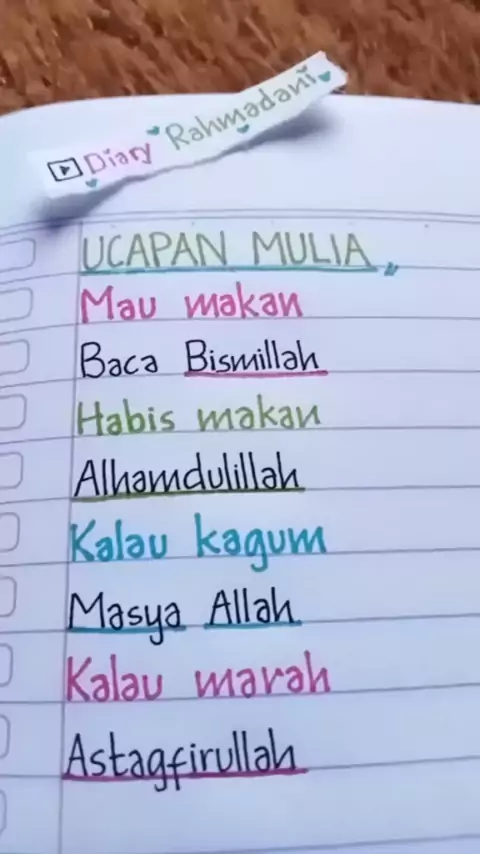 Diary Rahmadani
UCAPAN MULIA
Mau makan
Baca Bismillah
Habis makan
Alhamdulillah
Kalau kagum
Masya Allah
Kalau marah
Astagfirullah